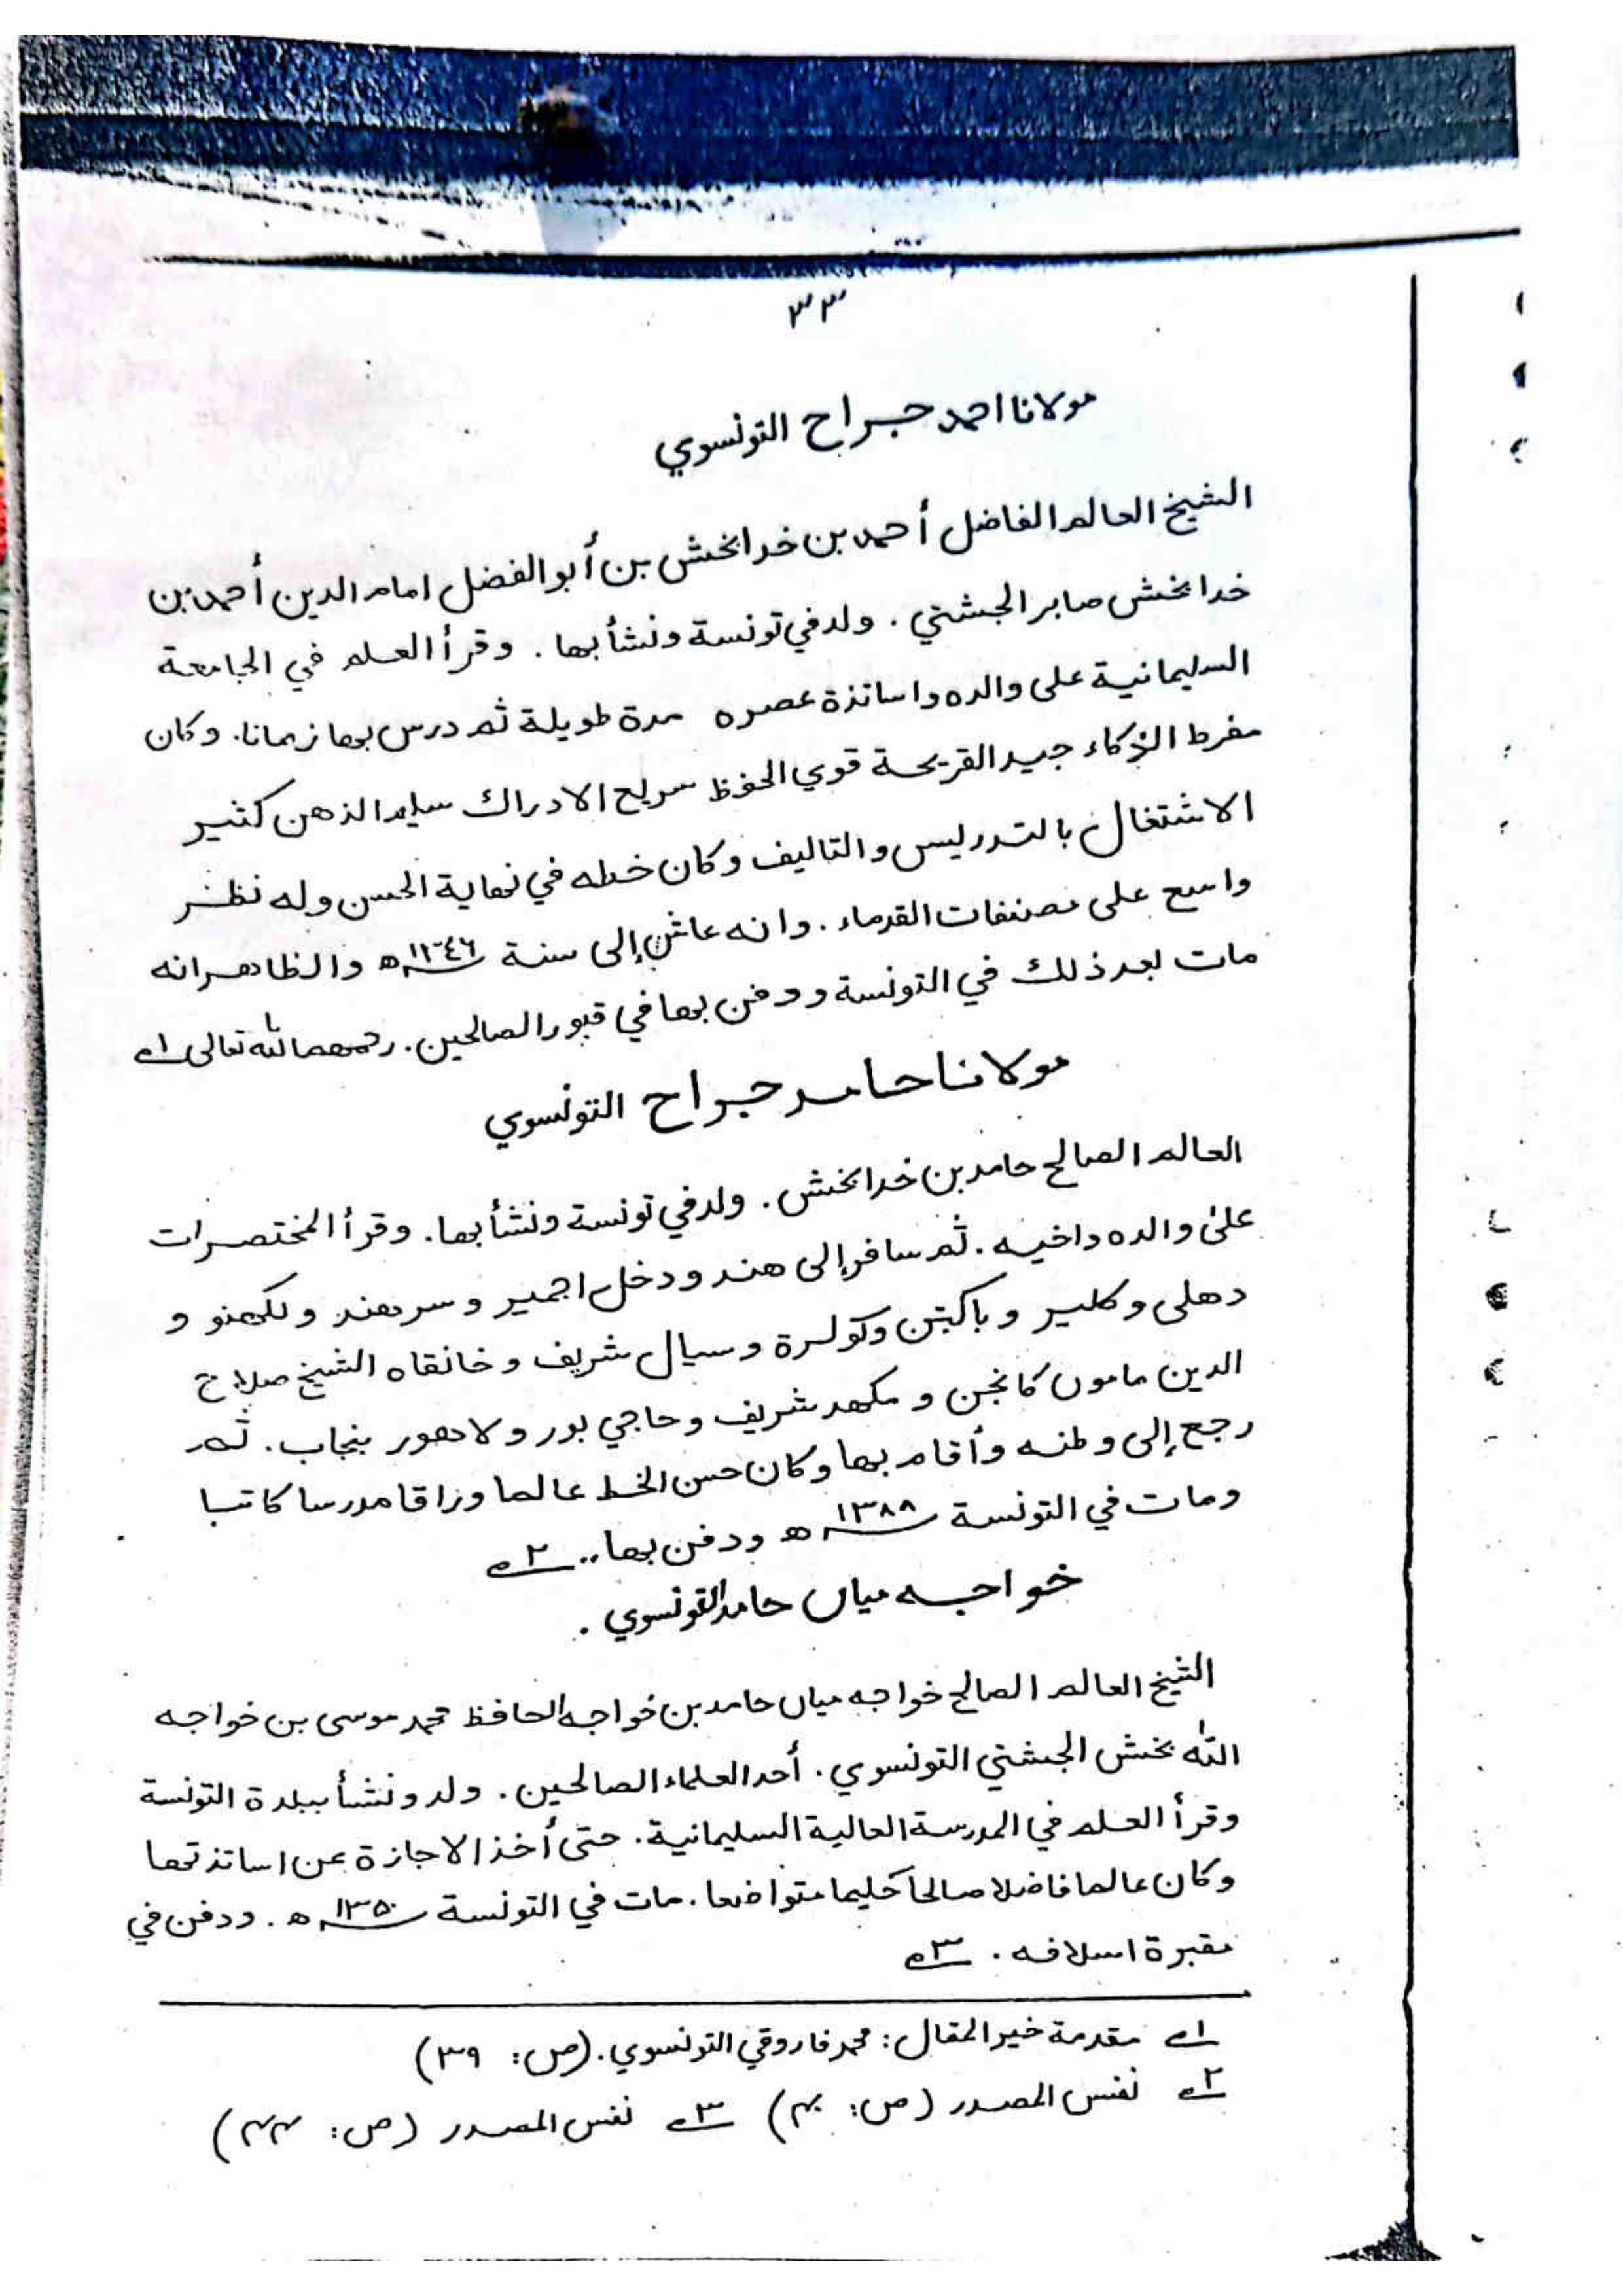 ٣٣
مولانا احمد جراح التونسوي
الشيخ العالم الفاضل أحمد بن خدابخش بن أبو الفضل امام الدين أحمد بن
خدا بخش صابر الجشتي . ولد في تونسة ونشأ بها . وقرأ العلم في الجامعة
السليمانية على والده واساتذة عصره مدة طويلة ثم درس بها زمانا. وكان
مفرط الذكاء جيد القريحة قوي الحفظ سريع الادراك سليم الذهن كثير
الاشتغال بالتدريس والتاليف وكان خطه في نهاية الحسن وله نظر
واسع على مصنفات القدماء . وانه عاش إلى سنة ١٣٤٦ھ والظاهر انه
مات بعد ذلك في التونسة ودفن بها في قبور الصالحين. رحمهما الله تعالى ١ے
مولانا حامد جراح التونسوي
العالم الصالح حامد بن خدا بخش . ولد في تونسة ونشأ بها. وقرأ المختصرات
على والده واخيه . ثم سافر إلى هند ودخل اجمير وسرهند ولكهنو و
دهلى وكلير وباكبتن وكولرة وسيال شريف وخانقاه الشيخ صلاح
الدين مامون كانجن و مكهد شريف وحاجي بور ولاهور بنجاب. ثم
رجع إلى وطنه وأقام بها وكان حسن الخط عالما وزاقا مدرسا كاتبا
ومات في التونسة ١٣٨٨ھ ودفن بها .. ٢ے
خواجه میاں حامد التونسوي .
الشيخ العالم الصالح خواجه میاں حامد بن خواجه الحافظ محمد موسى بن خواجه
الله بخش الجشتي التونسوي . أحد العلماء الصالحين . ولد ونشأ ببلدة التونسة
وقرأ العلم في المدرسة العالية السليمانية . حتى أخذ الاجازة عن اساتذتها
وكان عالما فاضلا صالحا حليما متواضعا . مات في التونسة ١٣٥٠ھ . ودفن في
مقبرة اسلافه . ٣ے
١ے مقدمة خير المقال : محمد فاروقي التونسوي . (ص : ٣٩)
٢ے نفس المصدر (ص : ۴۰) ٣ے نفس المصدر (ص : ۴۴)